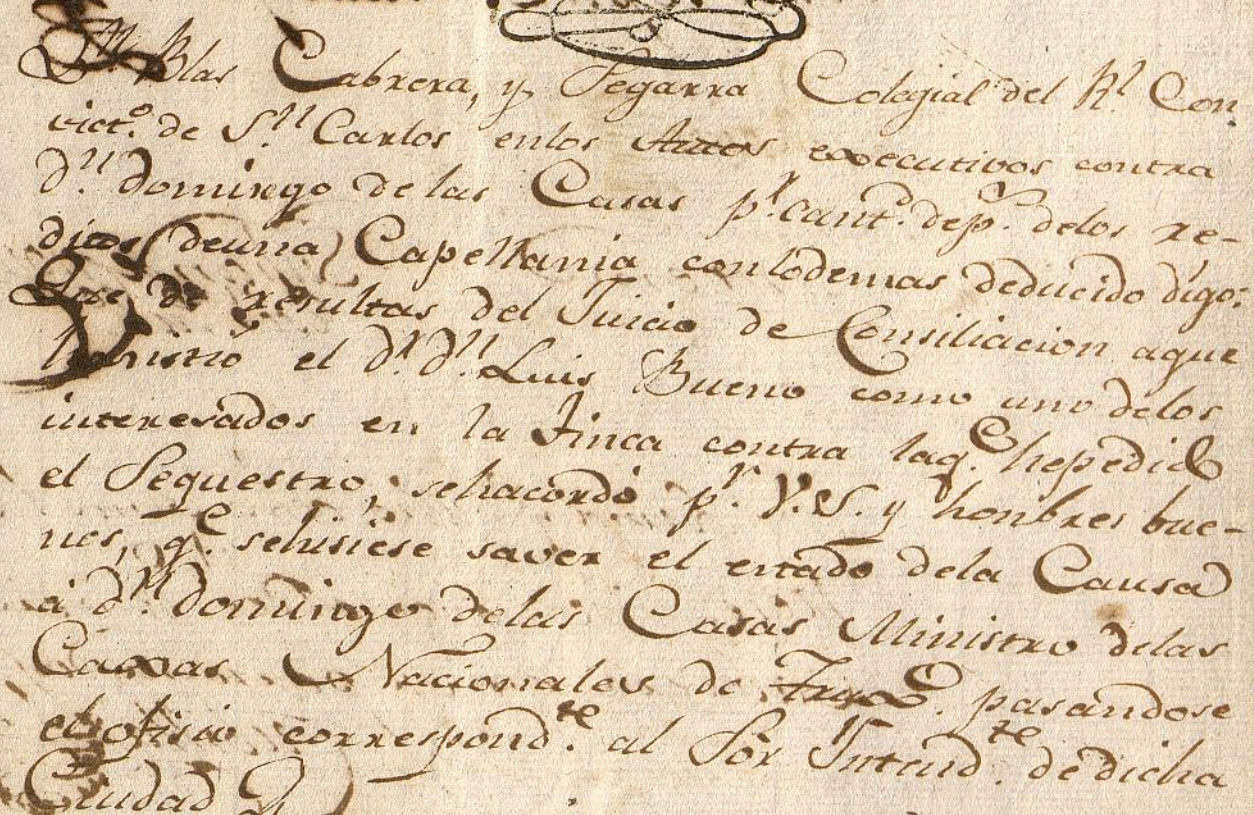 Dn. Blas Cabrera, y Segarra Colegial del Rl Con
vict.o de Sn. Carlos enlos Autos executivos contra
dn. domingo de las Casas pr. cant.d de p.s delos re-
ditos (deuna) Capellania conlodemas deducido digo:
Que de resultas del Juicio de Consiliacion aque
el dr. dn. Luis Bueno como uno delos
interesados en la Finca contra laq.e hepedido
el Sequestro, sehacordó pr. V.S. y hombres bue-
nos, q.e sehisiese saver el estado dela Causa
á dn. domingo delas Casas Ministro delas
Caxas Nacionales de pasandose
el ofisio correspond.te al Sor Intend.te de dicha
Ciudad